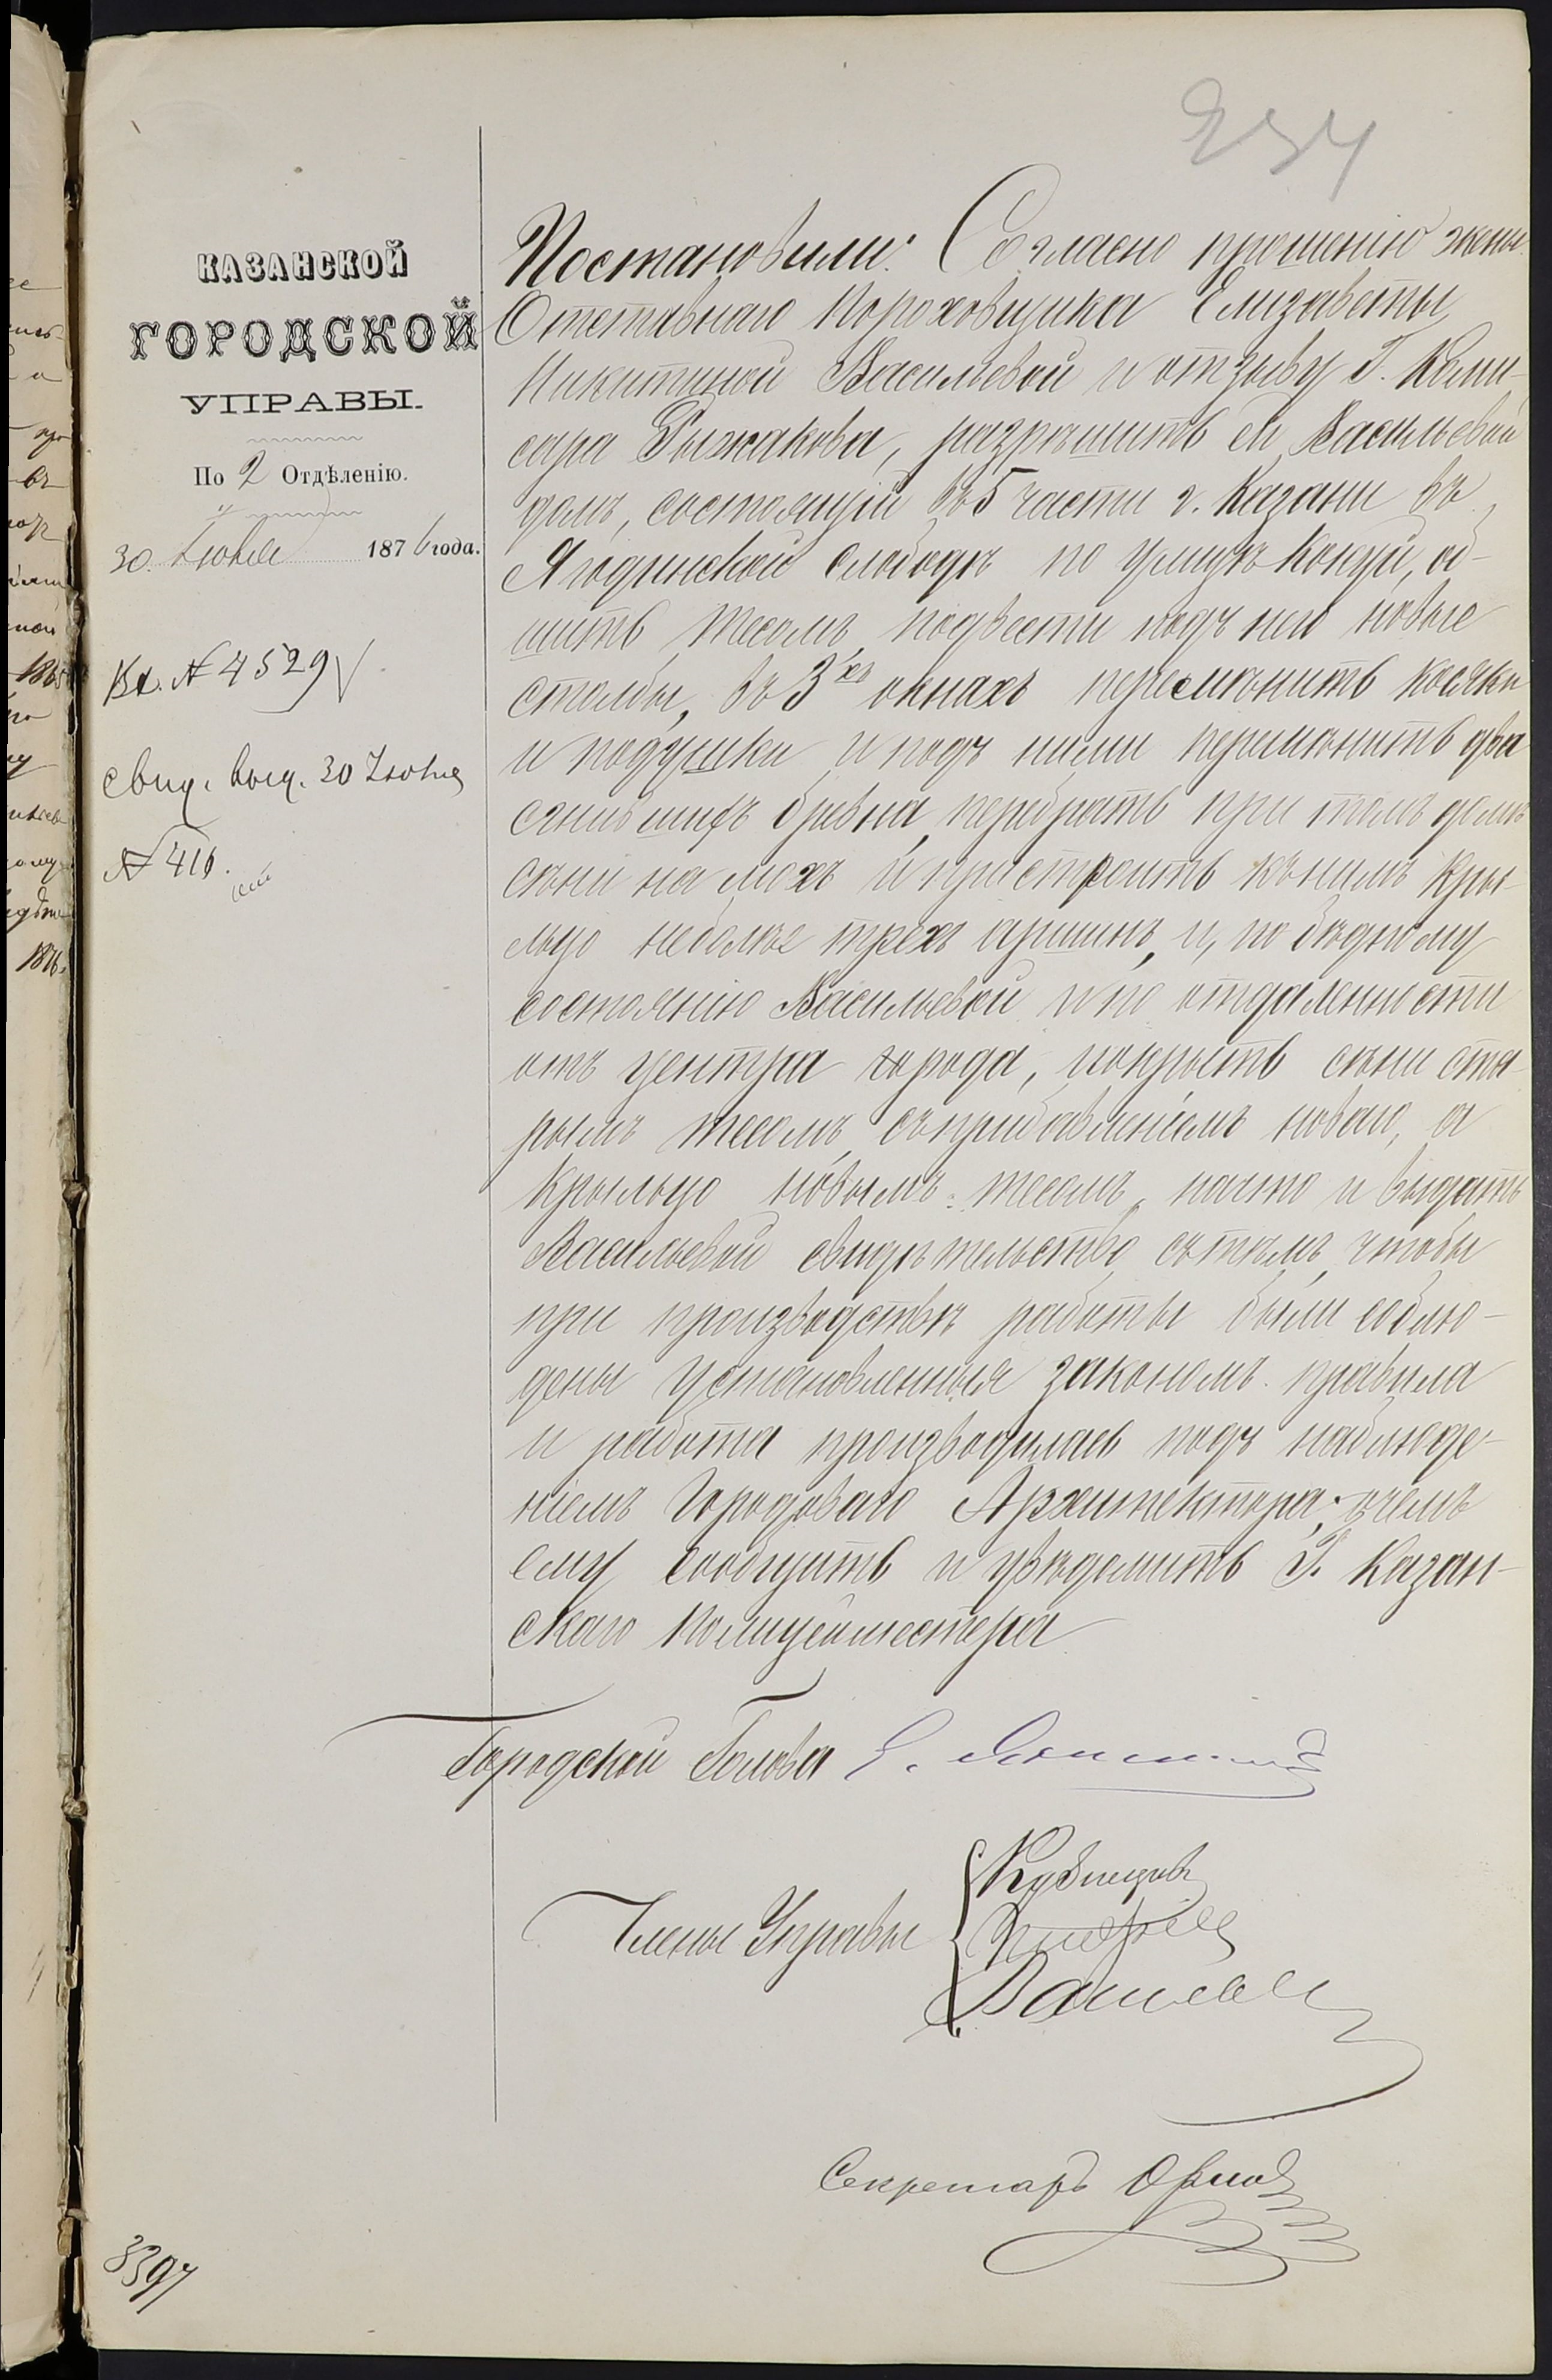 234
КАЗАНСКОЙ
ГОРОДСКОЙ
УПРАВЫ.
По 2 Отдѣленію.
30 Іюня 1876 года.
Вх. № 4529
свид. выд. 30 Іюня
№ 416.
Постановили: Согласно прошенію жены
Отставнаго Пороховщика Елизаветы
Никитиной Васильевой и отзыву Г. Коми-
сара Рыжакова, разрѣшить ей Васильевой
домъ, состоящій въ 5 части г. Казани въ
Ягодинской слободѣ по улицѣ Конци, об-
шить тесомъ, подвести подъ него новые
столбы, въ 3хъ окнахъ перемѣнить косяки
и подушки и подъ ними перемѣнить два
сгнившихъ бревна, перебрать при томъ домѣ
сѣни на мохъ и пристроить къ нимъ крыль-
льцо неболѣе трехъ аршинъ, и, по бѣдному
состоянію Васильевой и по отдаленности
отъ центра города, покрыть сѣни ста-
рымъ тесомъ съ прибавленіемъ новаго, а
крыльцо новымъ тесомъ, на что и выдать
Васильевой свидѣтельство съ тѣмъ, чтобы
при производствѣ работы были соблю-
дены установленныя закономъ правила
и работа производилась подъ наблюде-
ніемъ Городоваго Архитектора, о чемъ
ему сообщить и увѣдомить Г. Казан-
скаго Полицеймейстера
Городской Голова
Члены Управы
Секретарь Орлов
3397